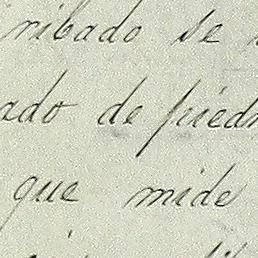 ribado se
ado de piedr
que mide